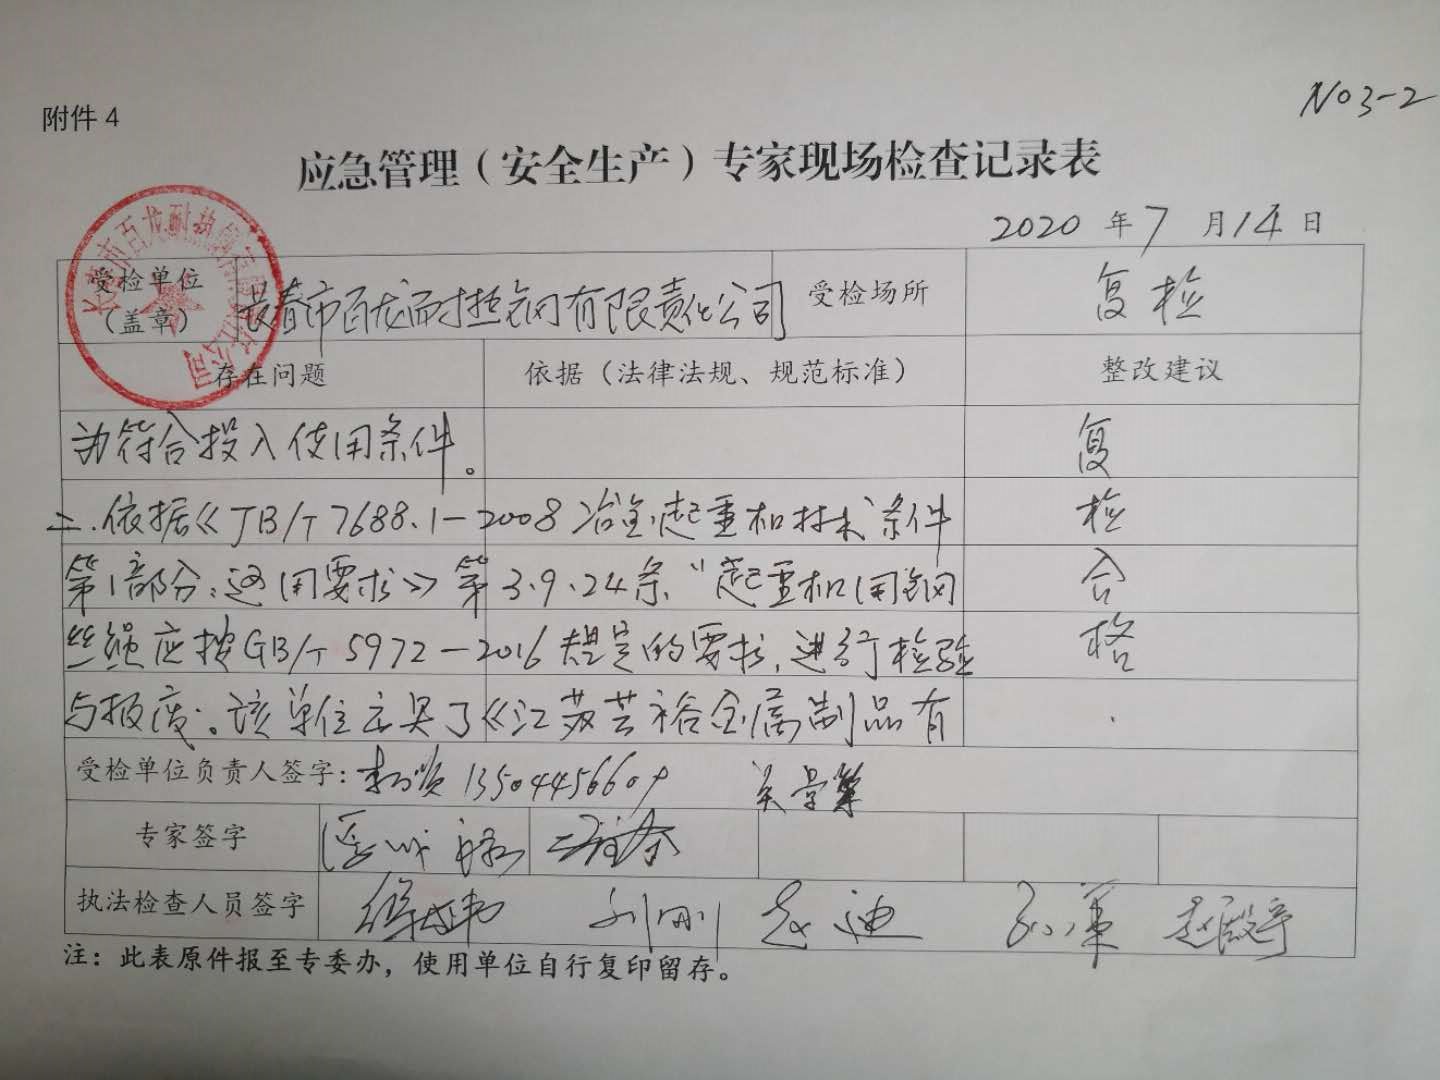 NO3-2
附件 4
应急管理（安全生产）专家现场检查记录表
2020 年 7 月 14 日
长春市百龙耐热钢有限责任公司
受检单位（盖章） 长春市百龙耐热钢有限责任公司 受检场所 复检
存在问题 依据（法律法规、规范标准） 整改建议
为符合投入使用条件。 复
二.依据《JB/T 7688.1-2008 冶金起重机技术条件 检
第1部分:通用要求》第3.9.24条"起重机用钢 合
丝绳应按GB/T 5972-2016规定的要求,进行检验 格
与报废"。该单位出具了《江苏芸裕金属制品有
受检单位负责人签字: 13504456609
专家签字
执法检查人员签字 刘刚 赵迪
注：此表原件报至专委办，使用单位自行复印留存。